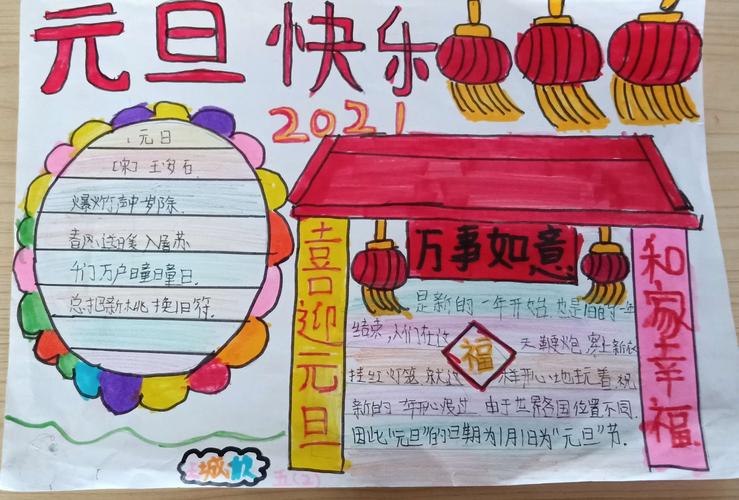 元旦 快乐
2021
元日
[宋] 王安石
爆竹声中一岁除
春风送暖入屠苏
千门万户曈曈日
总把新桃换旧符
喜迎元旦
万事如意
和家幸福
福
是新的一年开始也是旧的一年
结束,人们在这 天鞭炮穿上新衣
挂红灯笼就这样开心地玩着祝
新的一年开心度过 由于世界各国位置不同
因此"元旦"的日期为1月1日为"元旦"节.
城
五(2)